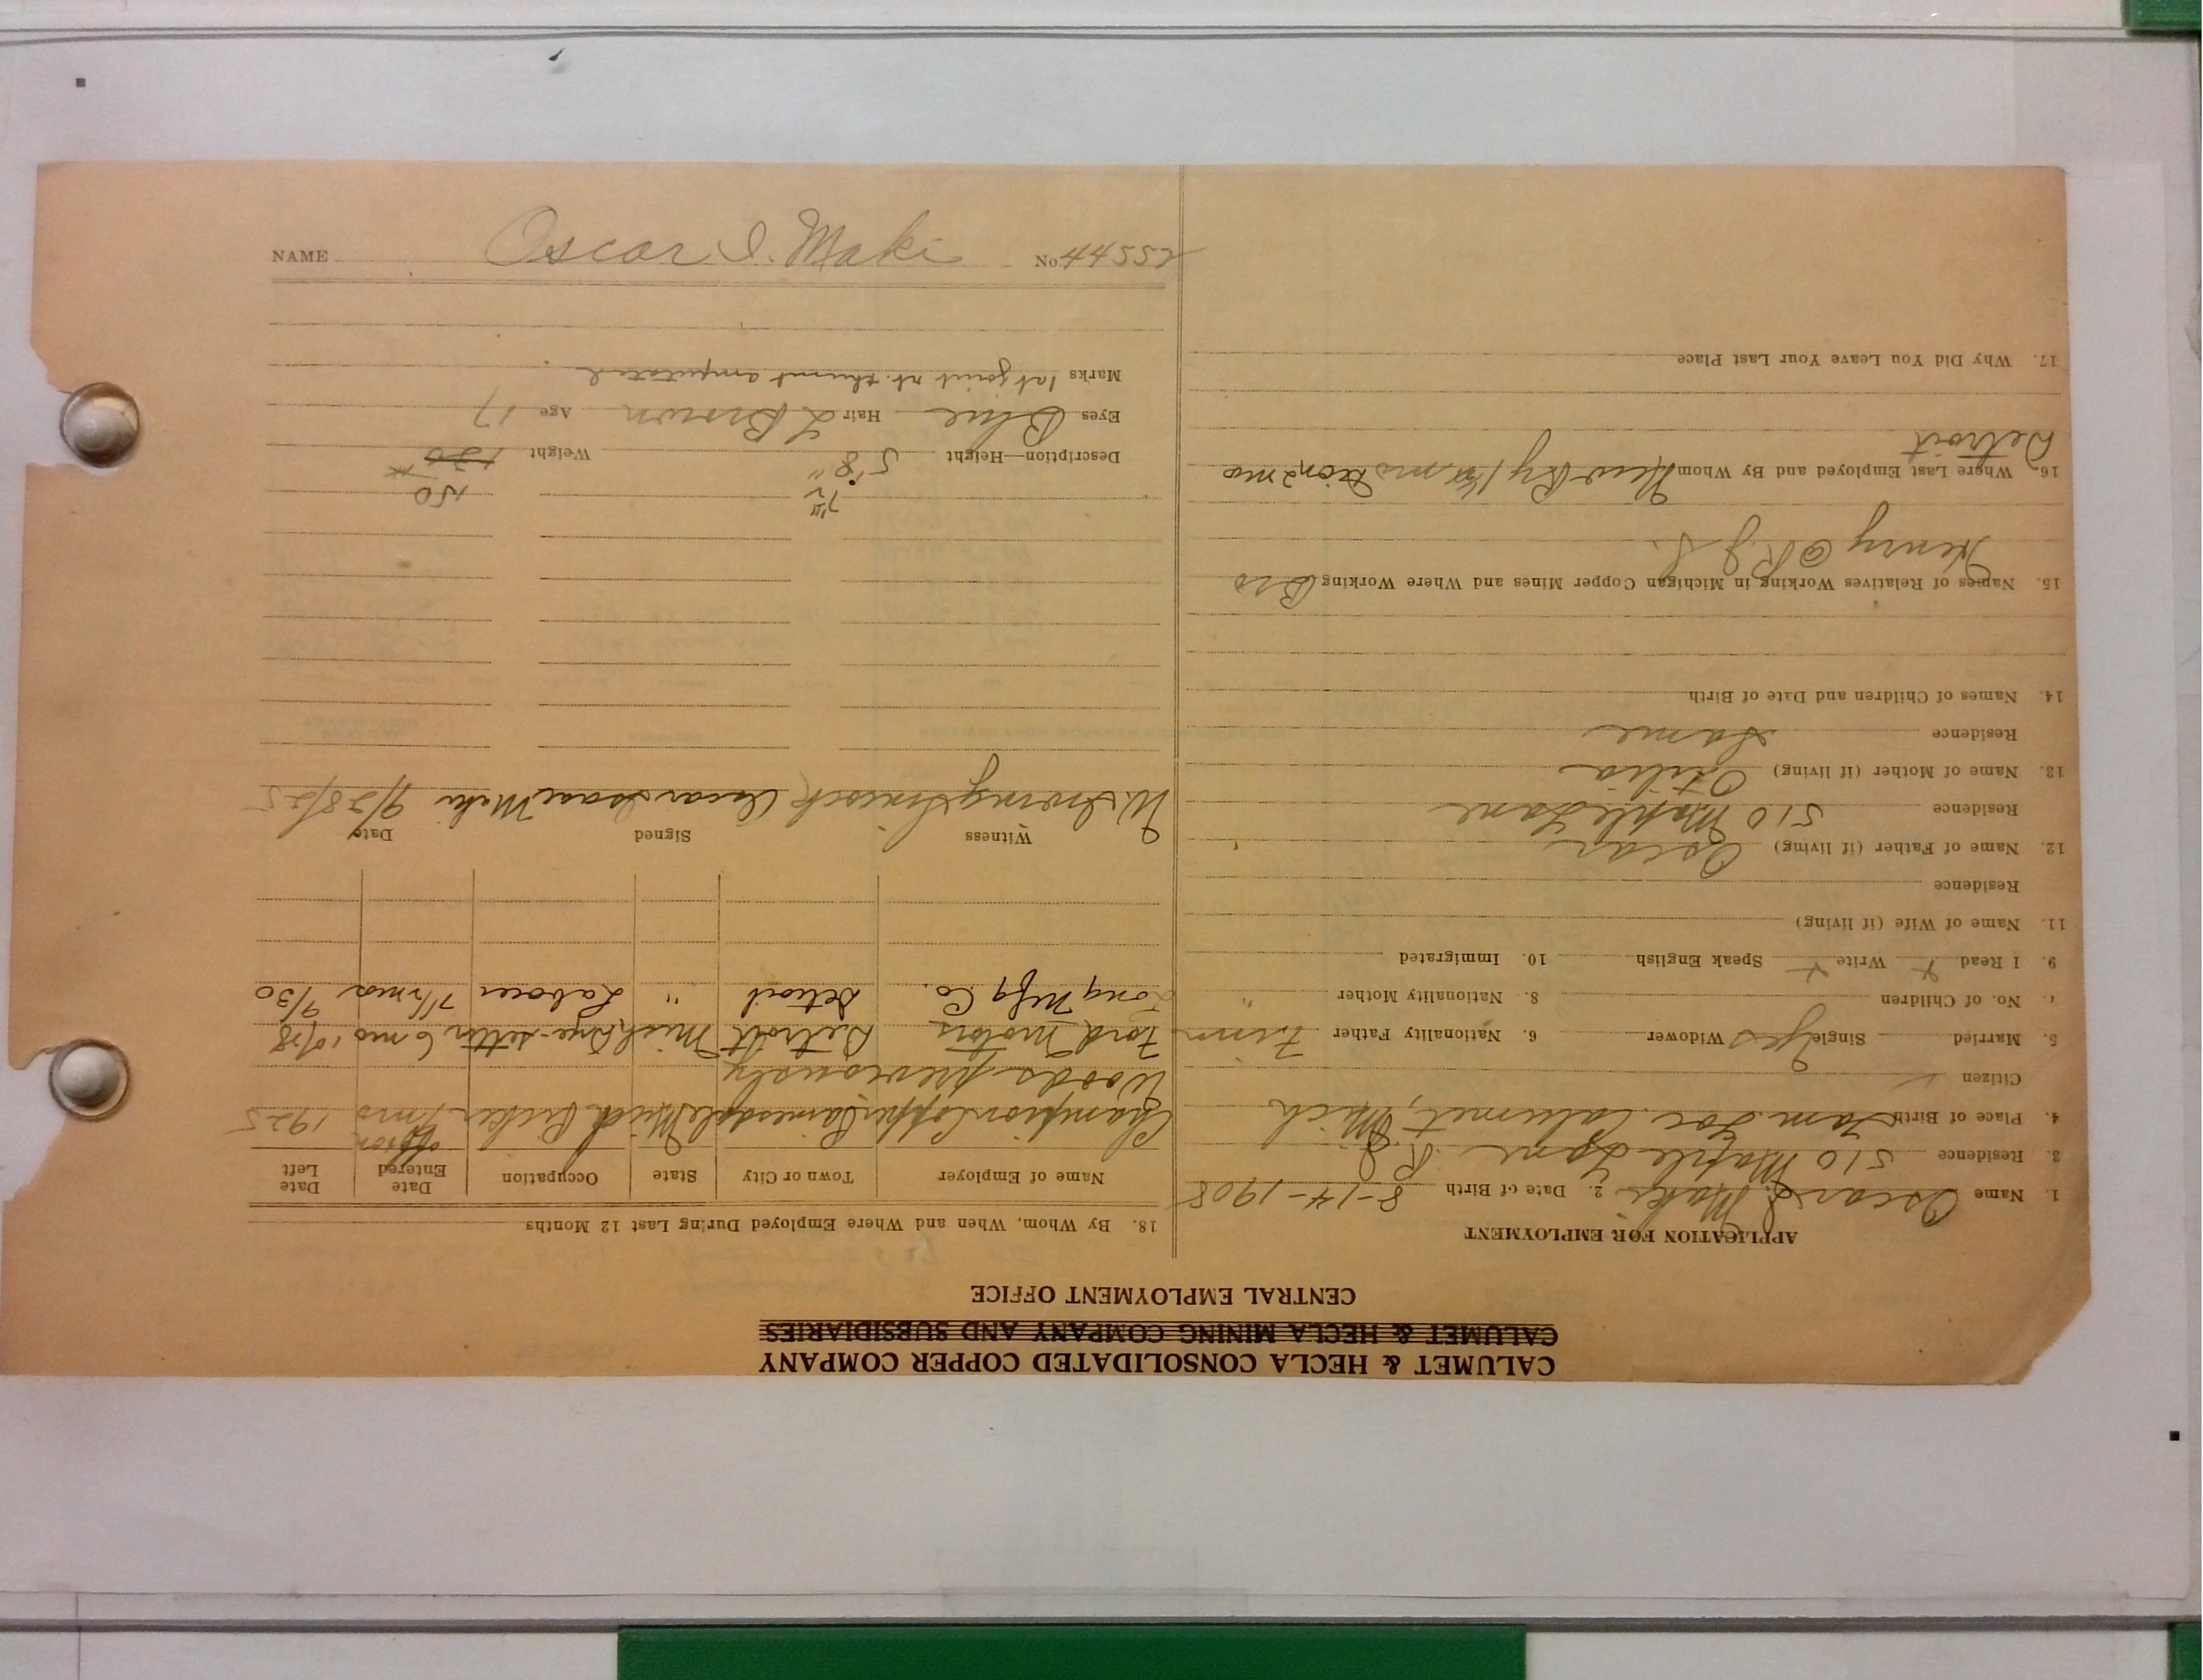 CALUMET & HECLA CONSOLIDATED COPPER COMPANY
CALUMET & HECLA MINING COMPANY AND SUBSIDIARIES
CENTRAL EMPLOYMENT OFFICE
APPLICATION FOR EMPLOYMENT
1. Name Oscar I. Maki 2. Date of Birth 8-14-1908
3. Residence 510 Maple Lane R J
4. Place of Birth Tam. Loc. Calumet, Mich
Citizen
5. Married Single Yes Widower 6. Nationality Father Finn
7. No. of Children 8. Nationality Mother "
9. I Read x Write x Speak English 10. Immigrated
11. Name of Wife (if living)
Residence
12. Name of Father (if living) Oscar
Residence 510 Maple Lane
13. Name of Mother (if living) Otilia
Residence Same
14. Names of Children and Date of Birth
15. Names of Relatives Working in Michigan Copper Mines and Where Working Bro
Henry @ R. J. S.
16. Where Last Employed and By Whom 2 mo
Detroit
17. Why Did You Leave Your Last Place
18. By Whom, When and Where Employed During Last 12 Months
Name of Employer Town or City State Occupation Date Entered Date Left
Champion Copper Painesdale Mich Picker 1 mo 1925
Woods previously
Ford Motors Detroit Mich Dye-setter 6 mo 10/28
Long Mfg Co. Detroit " Laborer 7 1/2 mos 9/30
Witness Signed Date
Oscar Isaac Maki 9/28/25
7 1/2" 150
Description—Height 5' 8" Weight 130
Eyes Blue Hair L Brown Age 17
Marks 1st joint rt. thumb amputated
NAME Oscar I. Maki No. 44552